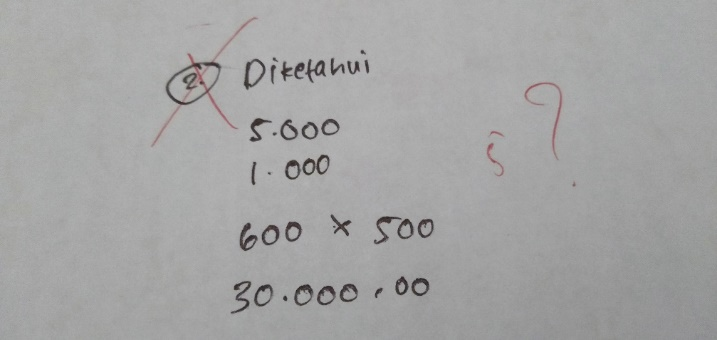 2. Diketahui
5.000
1.000
5 ?
600 x 500
30.000,00